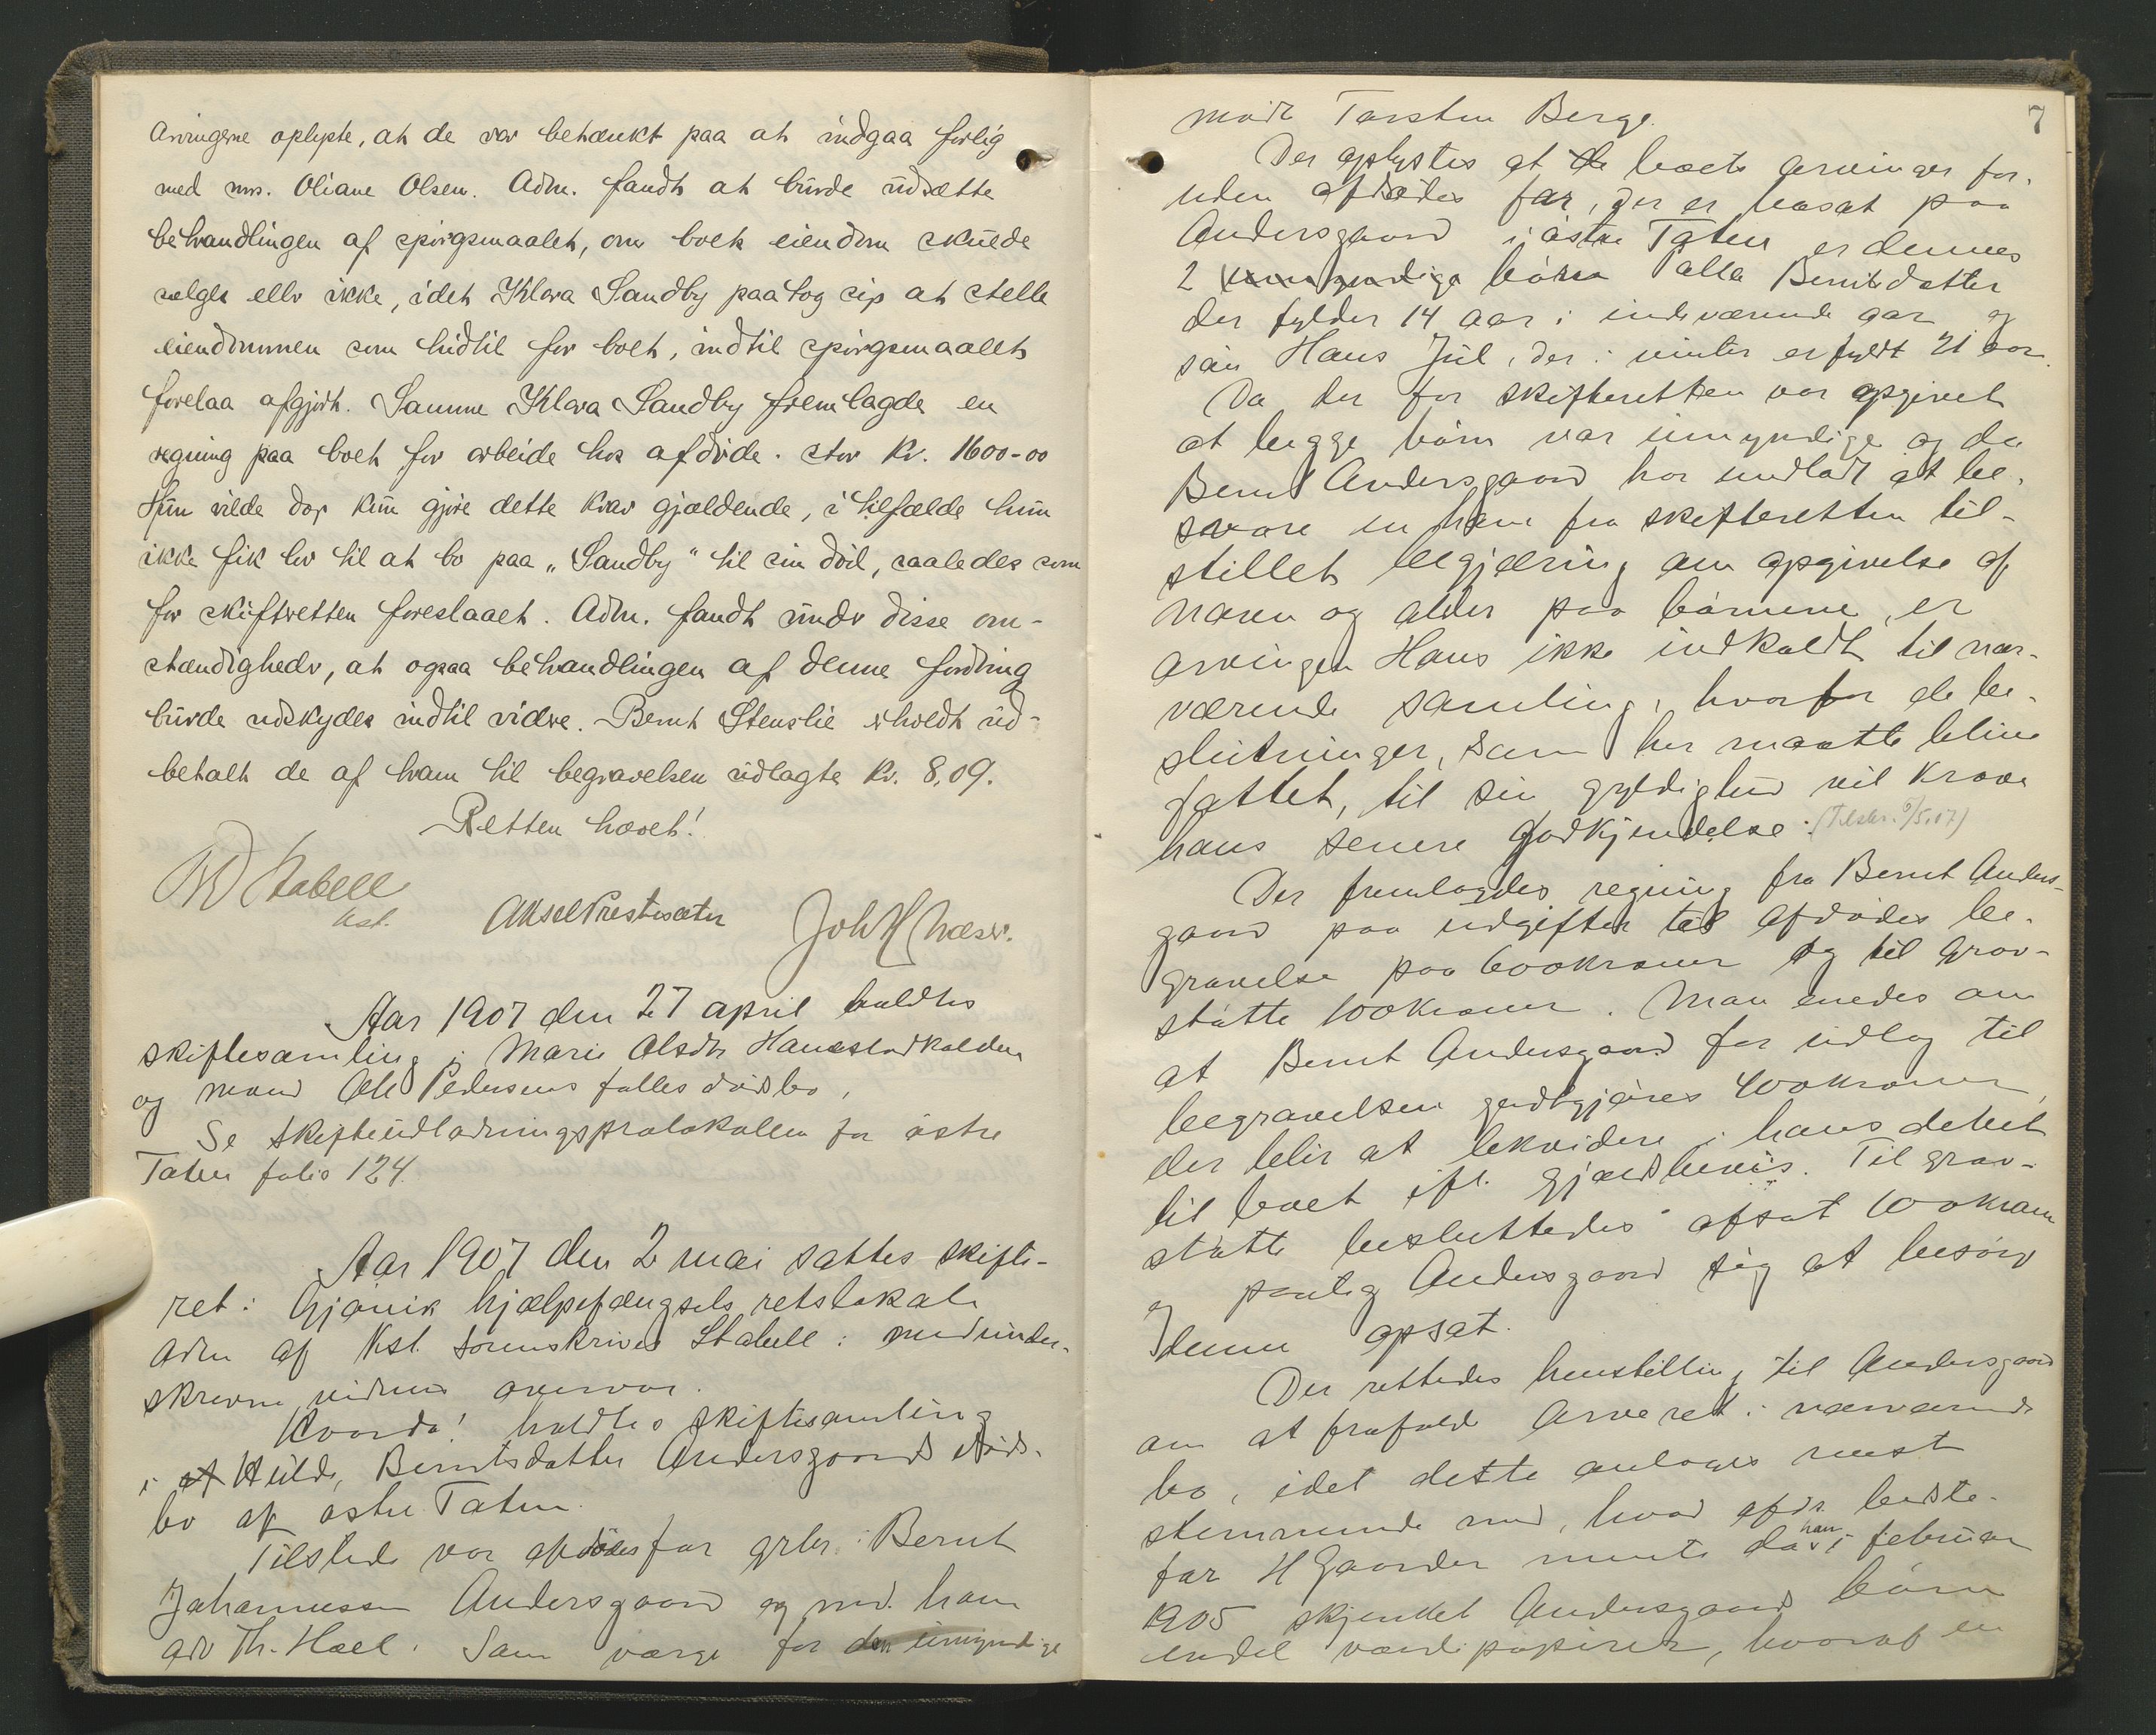 Arvingerne oplyste, at de var betænkt paa at indgaa forlig
med mrs. Oliane Olsen. Adm. fandt at burde udsætte
behandlingen af spørgsmaalet, om boets eiendom skulde
sælges eller ikke, idet Klara Sandby paatog sig at stelle
eiendommen som hidtil for boet, indtil spørgsmaalet
forelaa afgjort. Samme Klara Sandby fremlagde en
regning paa boet for arbeide hos afdøde. stor Kr. 1600-00
Hun vilde dog kun gjøre dette krav gjældende, i tilfælde hun
ikke fik lov til at bo paa „Sandby" til sin død, saaledes som
for skifteretten foreslaaet. Adm. fandt under disse om-
stændigheder, at ogsaa behandlingen af denne fordring
burde udskydes indtil videre. Bernt Stenslie erholdt ud-
betalt de af ham til begravelsen udlagte Kr. 8,09.
Retten hævet!
Stabell
kst. Aksel Prestesæter Joh H
Aar 1907 den 27 april holdtes
skiftesamling i Marie Olsdtr Hanestadkalden
og mand Ole Pedersens fælles dødsbo.
Se skifteudlodningsprotokollen for østre
Toten folio 124.
Aar 1907 den 2 mai sattes skifte-
ret i Gjøvik hjælpefængsels retslokale
adm af Kst. sorenskriver Stabell i medunder-
skrevne vidners overvær.
Hvorda! holdtes skiftesamling
i Hulda Berntsdatter Andersgaards døds-
bo af østre Toten.
Tilstede var afdødes far grbr. Bernt
Johannessen Andersgaard og med ham
adv Th. Hoel. Som værge for den umyndige
7
mødte Torsten Berge.
Der oplystes at de boets arvinger for-
uden afdødes far, der er bosat paa
Andersgaard i østre Toten er dennes
2 umyndige børn Palla Berntsdatter
der fylder 14 aar i indeværende aar og
søn Hans Juul, der i vinter er fyldt 21 aar.
Da der for skifteretten var opgivet
at begge børn var umyndige og da
Bernt Andersgaard har undladt at be-
svare en ham fra skifteretten til-
stillet begjæring om opgivelse af
navn og alder paa børnene, er
arvingen Hans ikke indkaldt til nær-
værende samling, hvorfor de be-
slutninger, som her maatte blive
fattet, til sin gyldighed vil kræve
hans senere godkjendelse. (Tilskr. 3/5.07)
Der fremlagdes regning fra Bernt Anders-
gaard paa udgifter til afdødes be-
gravelse paa 600 kroner og til grav-
støtte 100 kroner. Man enedes om
at Bernt Andersgaard for udlæg til
begravelsen godtgjøres 400 kroner,
der blir at likvidere i hans debet
til boet ifl. gjældsbevis. Til grav-
støtte besluttedes afsat 100 kroner
og paatog Andersgaard sig at besørge
denne opsat.
Der rettedes henstilling til Andersgaard
om at frafalde arveret i nærværende
bo, idet dette antoges mest
stemmende med, hvad afdr. bedste-
far H Gaarder mente da han i februar
1905 skjenket Andersgaards børn
endel værdipapirer, hvoraf en